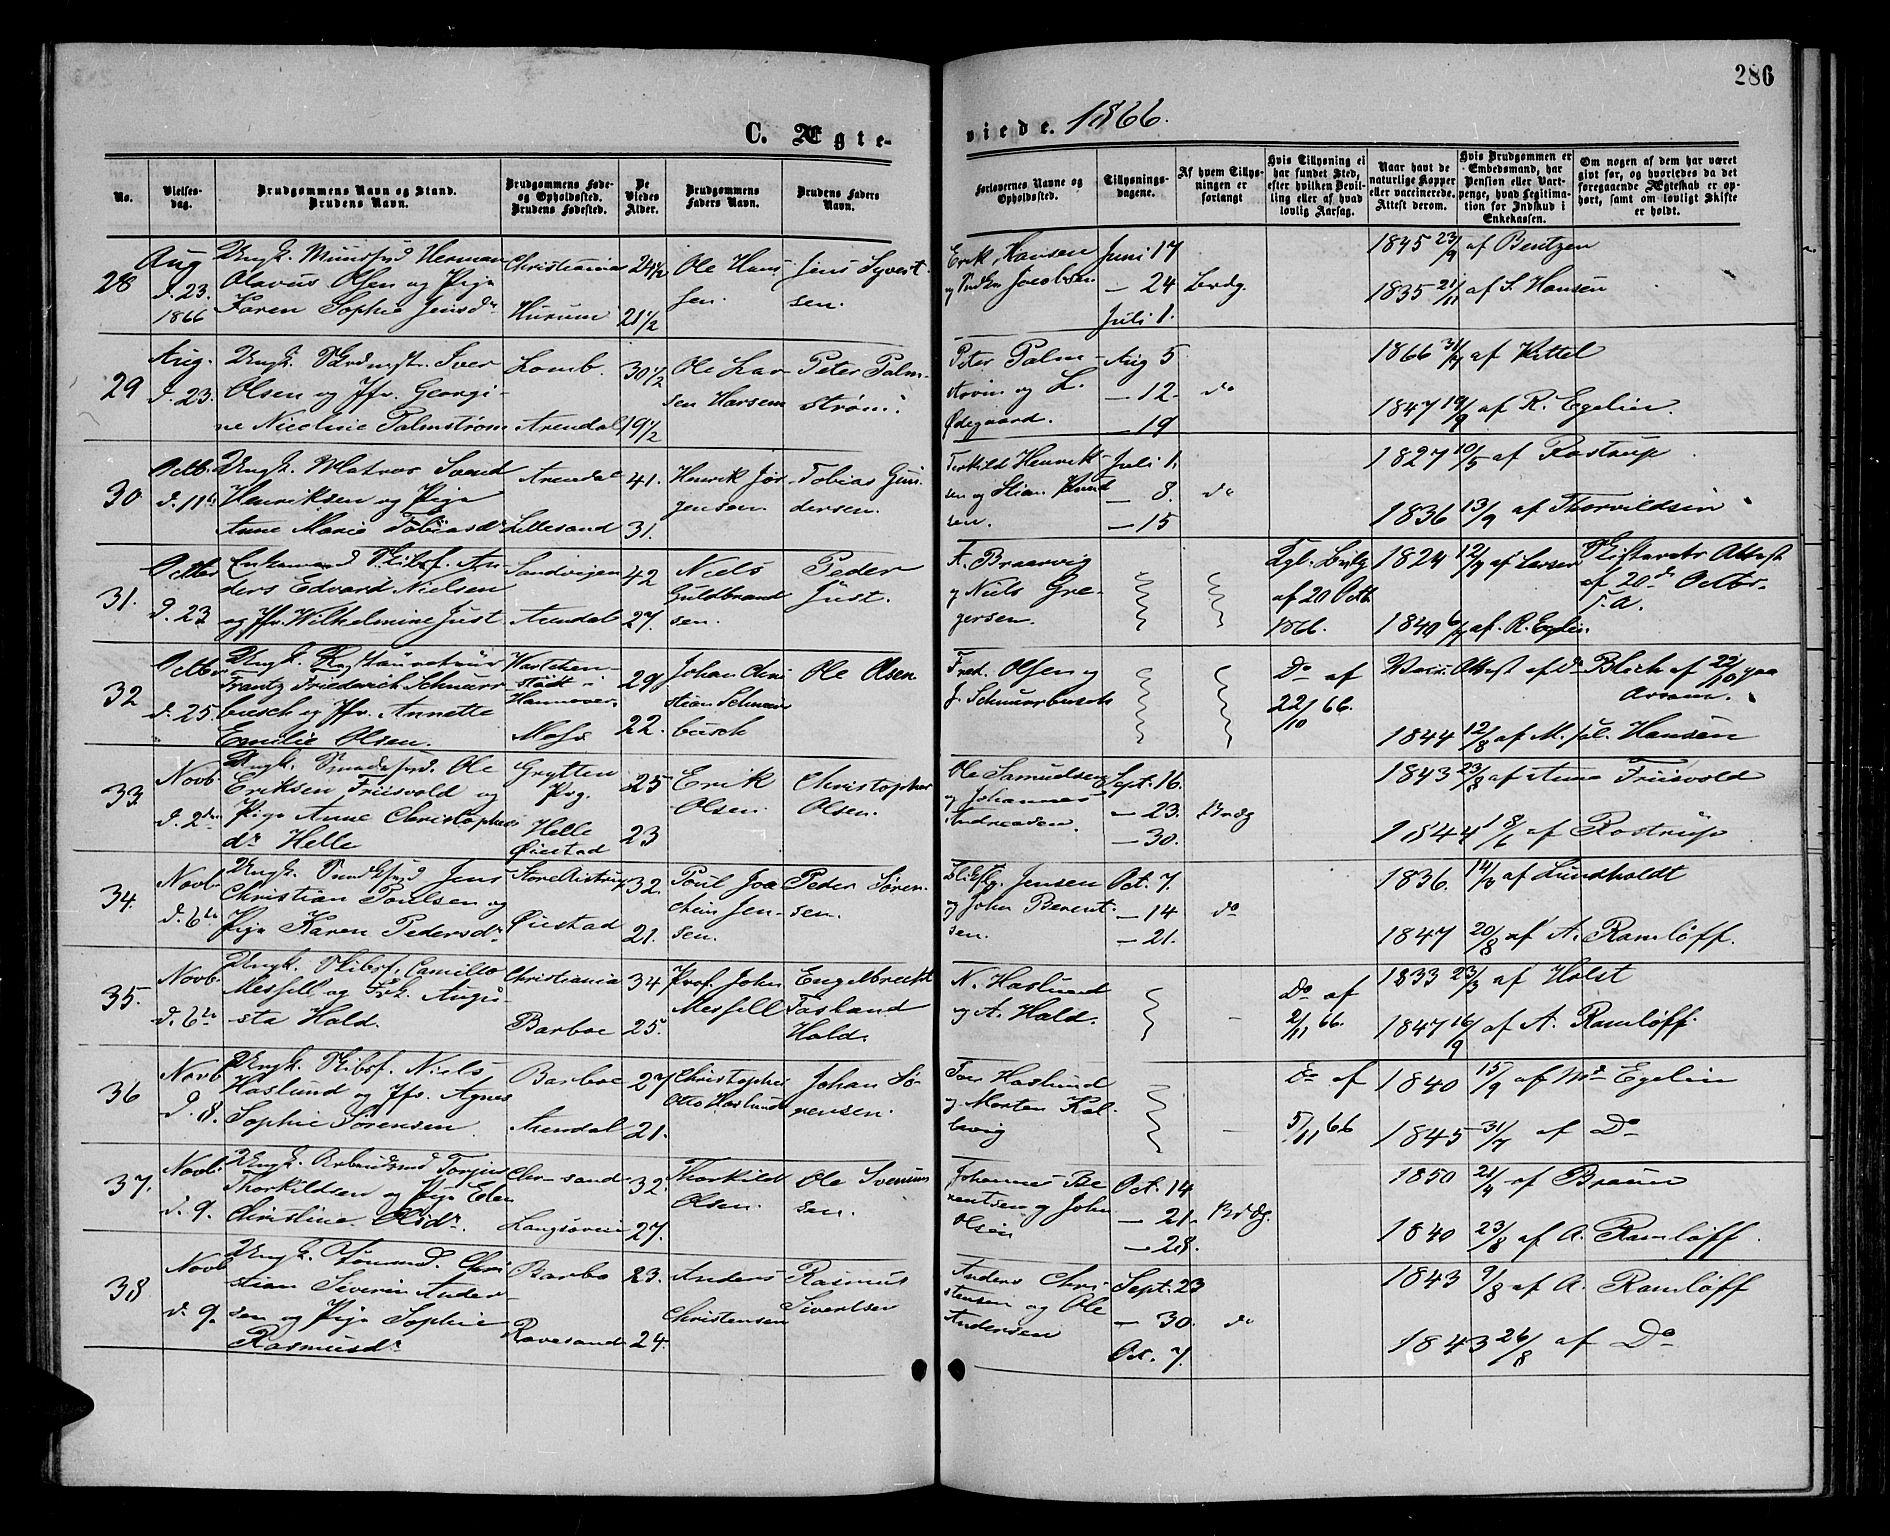 286
C. Ægte-
viede. 1866.
No.
Vielses-
dag.
Brudgommens Navn og Stand.
Brudens Navn.
Brudgommens Føde-
og Opholdssted.
Brudens Fødested.
De
Viedes
Alder.
Brudgommens
Faders Navn.
Brudens Faders
Navn.
Forlovernes Navne og
Opholdssted.
Tillysnings-
dagene.
Af hvem Tillys-
ningen er
forlangt
Hvis Tillysning ei
har fundet Sted,
efter hvilken Bevil-
ling eller af hvad
lovlig Aarsag.
Naar havt de
naturlige Kopper
eller vaccinerede.
Attest derom.
Hvis Brudgommen er
Embedsmand, har
Pension eller Vart-
penge, hvad Legitima-
tion for Indskud i
Enkekassen.
Om nogen af dem har været
givt før, og hvorledes da det
foregaaende Ægteskab er op-
hørt, samt om lovligt Skifte
er holdt.
28
Aug
d. 23.
1866
Ungk. Herman
Olavus Olsen og Pige
Karen Sophie Jensdr
Christiania
Hurum
24 1/2
21 1/2
Ole Han-
sen.
Jens Syvert-
sen.
Erik Hansen
og Jacobsen
Juni 17
— 24
Juli 1.
Brdg.
1845 23/9 af Bentzen
1835 21/11 af S. Hansen
29
Aug.
d. 23.
Ungk. Iver
Olsen og Jfr. Georgi-
ne Nicoline Palmstrøm
Lomb.
Arendal
30 1/2
19 1/2
Ole Lar-
sen Harsem
Peter Palm-
strøm.
Peter Palm-
strøm og L.
Ødegaard.
Aug 5
— 12.
— 19
do
1866 af Kittel
1847 19/9 af R. Egelien.
30
Octb.
d. 11te
Ungk. Matros Svend
Henriksen og Pige
Anne Marie Tobiasdr
Arendal
Lillesand
41.
31.
Henrik Jør-
gensen
Tobias Gun-
dersen.
Terkild Henrik-
sen og Stian Knud
sen.
Juli 1.
— 8.
— 15
do
1827 10/5 af Rostrup
1836 13/9 af Thorvildsen
31.
Octbr
d. 23
Enkemand Skibsf. An-
ders Edvard Nielsen
og Jfr. Wilhelmine Just
Sandvigen
Arendal
42
27.
Niels
Guldbrand
sen.
Peder
Just.
F. Braarvig
og Niels Gre-
gersen.
Kgl. Bvlg
af 20 Octb
1866.
1824 12/7 af Larsen
1840 6/7 af R. Egelin.
Skifterets Attest
af 20d Octbr
T. A.
32
Octbr
d. 25.
Ungk.
Frantz Friederich Schnurr
busch og Jfr. Annette
Emilie Olsen.
i
Hannover.
Moss
29
22.
Johan Chri
stian Schnurr
busch
Ole Olsen
Fred. Olsen og
J. Schnurrbusch
Do af
22/10 66.
Vacc. Attest af Dr Blich af 22/10
1844 12/8 af M. Hansen
33.
Novb.
d. 2den
Ungk. Ole
Eriksen Friisvold og
Pige Anne Christophers
dr Helle
Grytten
Prg.
Helle
Øiestad
25
23
Erik
Olsen.
Christopher
Olsen.
Ole Samuelsen
og Johannes
Andreasen.
Sept. 16.
— 23.
— 30.
Brdg
1843 23/8 af Anne Friisvold
1844 8/6 af Rostrup
34.
Novb.
d. 6te
Ungk. Jens
Christian Poulsen og
Pige Karen Pedersdr
Øiestad
32.
21.
Poul Joa
chim Jen-
sen.
Peder Søren-
sen.
Jensen
og John Berent-
sen.
Oct. 7.
— 14
— 21.
do
1836. 14/8 af Lundholdt
1847 20/8 af A. Ramløff.
35.
Novb.
d. 6te
Ungk. Skibsf. Camillo
Messell og Frk. Augu-
sta Hald.
Christiania
Barboe
34
25.
Prof. John
Messell
Engelbrecht
Fasland
Hald.
N. Haslund
og A. Hald.
Do af
2/11 66.
1833 23/3 af Holst
1847 16/9 af A. Ramløff.
36
Novb
d. 8.
Ungk. Skibsf. Niels
Haslund og Jfr. Agnes
Sophie Sørensen
Barboe
Arendal
27
21.
Christopher
Otto Haslund
Johan Sø-
rensen.
Haslund
og Morten Kal-
levig
Do af
5/11 66
1840 15/9 af Egelin
1845 31/7 af Do
37.
Novb.
d. 9.
Ungk. Arbeidsmd Torjus
Thorkildsen og Pige Elen
Christine Olsdr
Chr-sand
32.
27.
Thorkild
Olsen.
Ole Svenum
sen.
Johannes Be
rentsen og John
Olsen
Oct. 14
— 21.
— 28.
Brdg.
1850 21/4 af Bruun
1840 23/8 af A. Ramløff.
38
Novb
d. 9.
Ungk. Sømand. Chri
stian Severin Ander-
sen og Pige Sophie
Rasmusdr
Barbo
Revesand
23.
24.
Anders
Christensen
Rasmus
Sivertsen
Anders Chri-
stensen og Ole
Andersen
Sept. 23
— 30.
Oct. 7.
do
1843 9/8 af A. Ramløff
1843 26/8 af Do